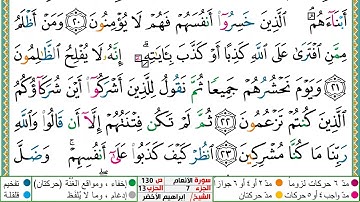 أَبْنَآءَهُمُ ۘ ٱلَّذِينَ خَسِرُوٓا۟ أَنفُسَهُمْ فَهُمْ لَا يُؤْمِنُونَ ٢٠ وَمَنْ أَظْلَمُ
مِمَّنِ ٱفْتَرَىٰ عَلَى ٱللَّهِ كَذِبًا أَوْ كَذَّبَ بِـَٔايَـٰتِهِۦٓ ۗ إِنَّهُۥ لَا يُفْلِحُ ٱلظَّـٰلِمُونَ
٢١ وَيَوْمَ نَحْشُرُهُمْ جَمِيعًا ثُمَّ نَقُولُ لِلَّذِينَ أَشْرَكُوٓا۟ أَيْنَ شُرَكَآؤُكُمُ
ٱلَّذِينَ كُنتُمْ تَزْعُمُونَ ٢٢ ثُمَّ لَمْ تَكُن فِتْنَتُهُمْ إِلَّآ أَن قَالُوا۟ وَٱللَّهِ
رَبِّنَا مَا كُنَّا مُشْرِكِينَ ٢٣ ٱنظُرْ كَيْفَ كَذَبُوا۟ عَلَىٰٓ أَنفُسِهِمْ ۚ وَضَلَّ
مدّ ٦ حركات لزوما مدّ ٢ أو ٤ أو ٦ جوازا سورة الأنعام ص 130 إخفاء، ومواقع الغنّة (حركتان) تفخيم
الجزء 7 الحزب 13
مدّ واجب ٤ أو ٥ حركات مدّ حركتان الشيخ/ ابراهيم الأخضر إدغام، وما لا يُلفَظ قلقلة